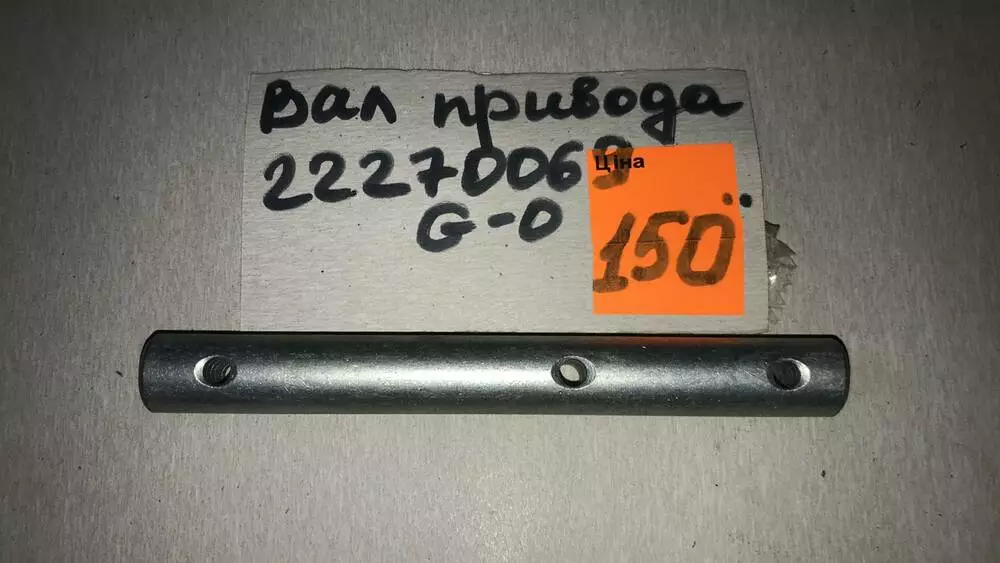 Вал привода
22270069
G-O
Ціна
150